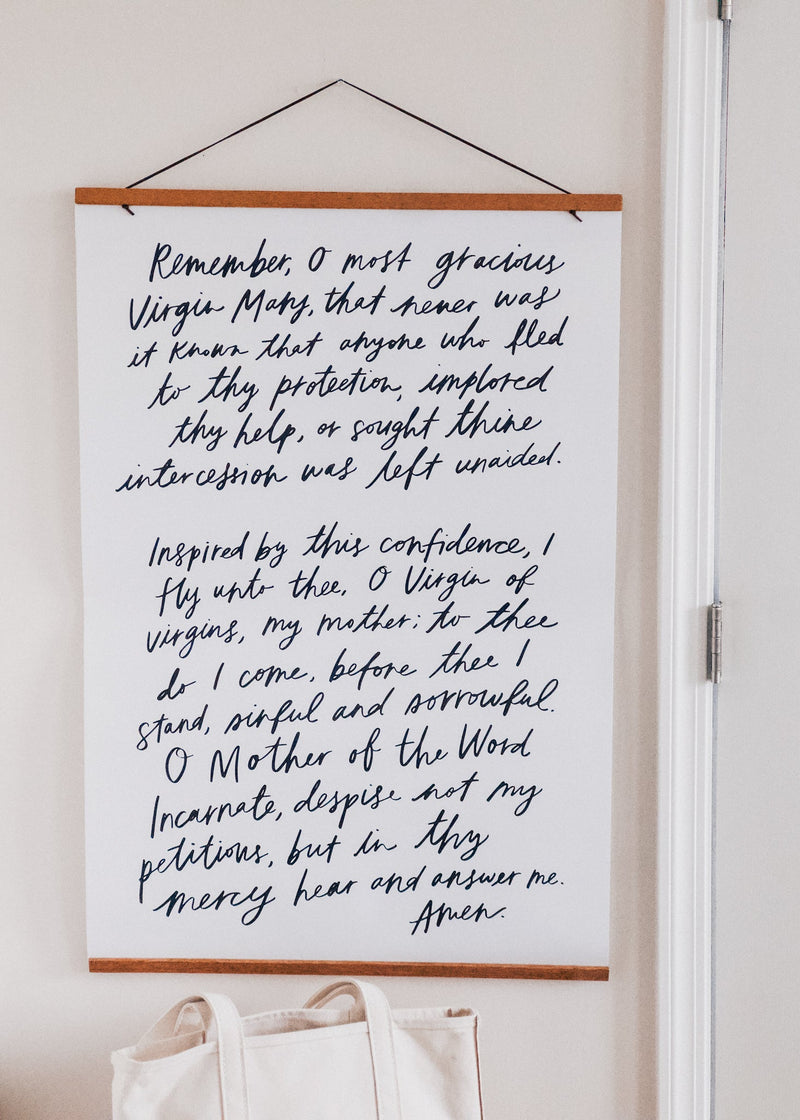 Remember, O most gracious
Virgin Mary, that never was
it known that anyone who fled
to thy protection, implored
thy help, or sought thine
intercession was left unaided.
Inspired by this confidence, I
fly unto thee, O Virgin of
virgins, my mother; to thee
do I come, before thee I
stand, sinful and sorrowful.
O Mother of the Word
Incarnate, despise not my
petitions, but in thy
mercy hear and answer me.
Amen.